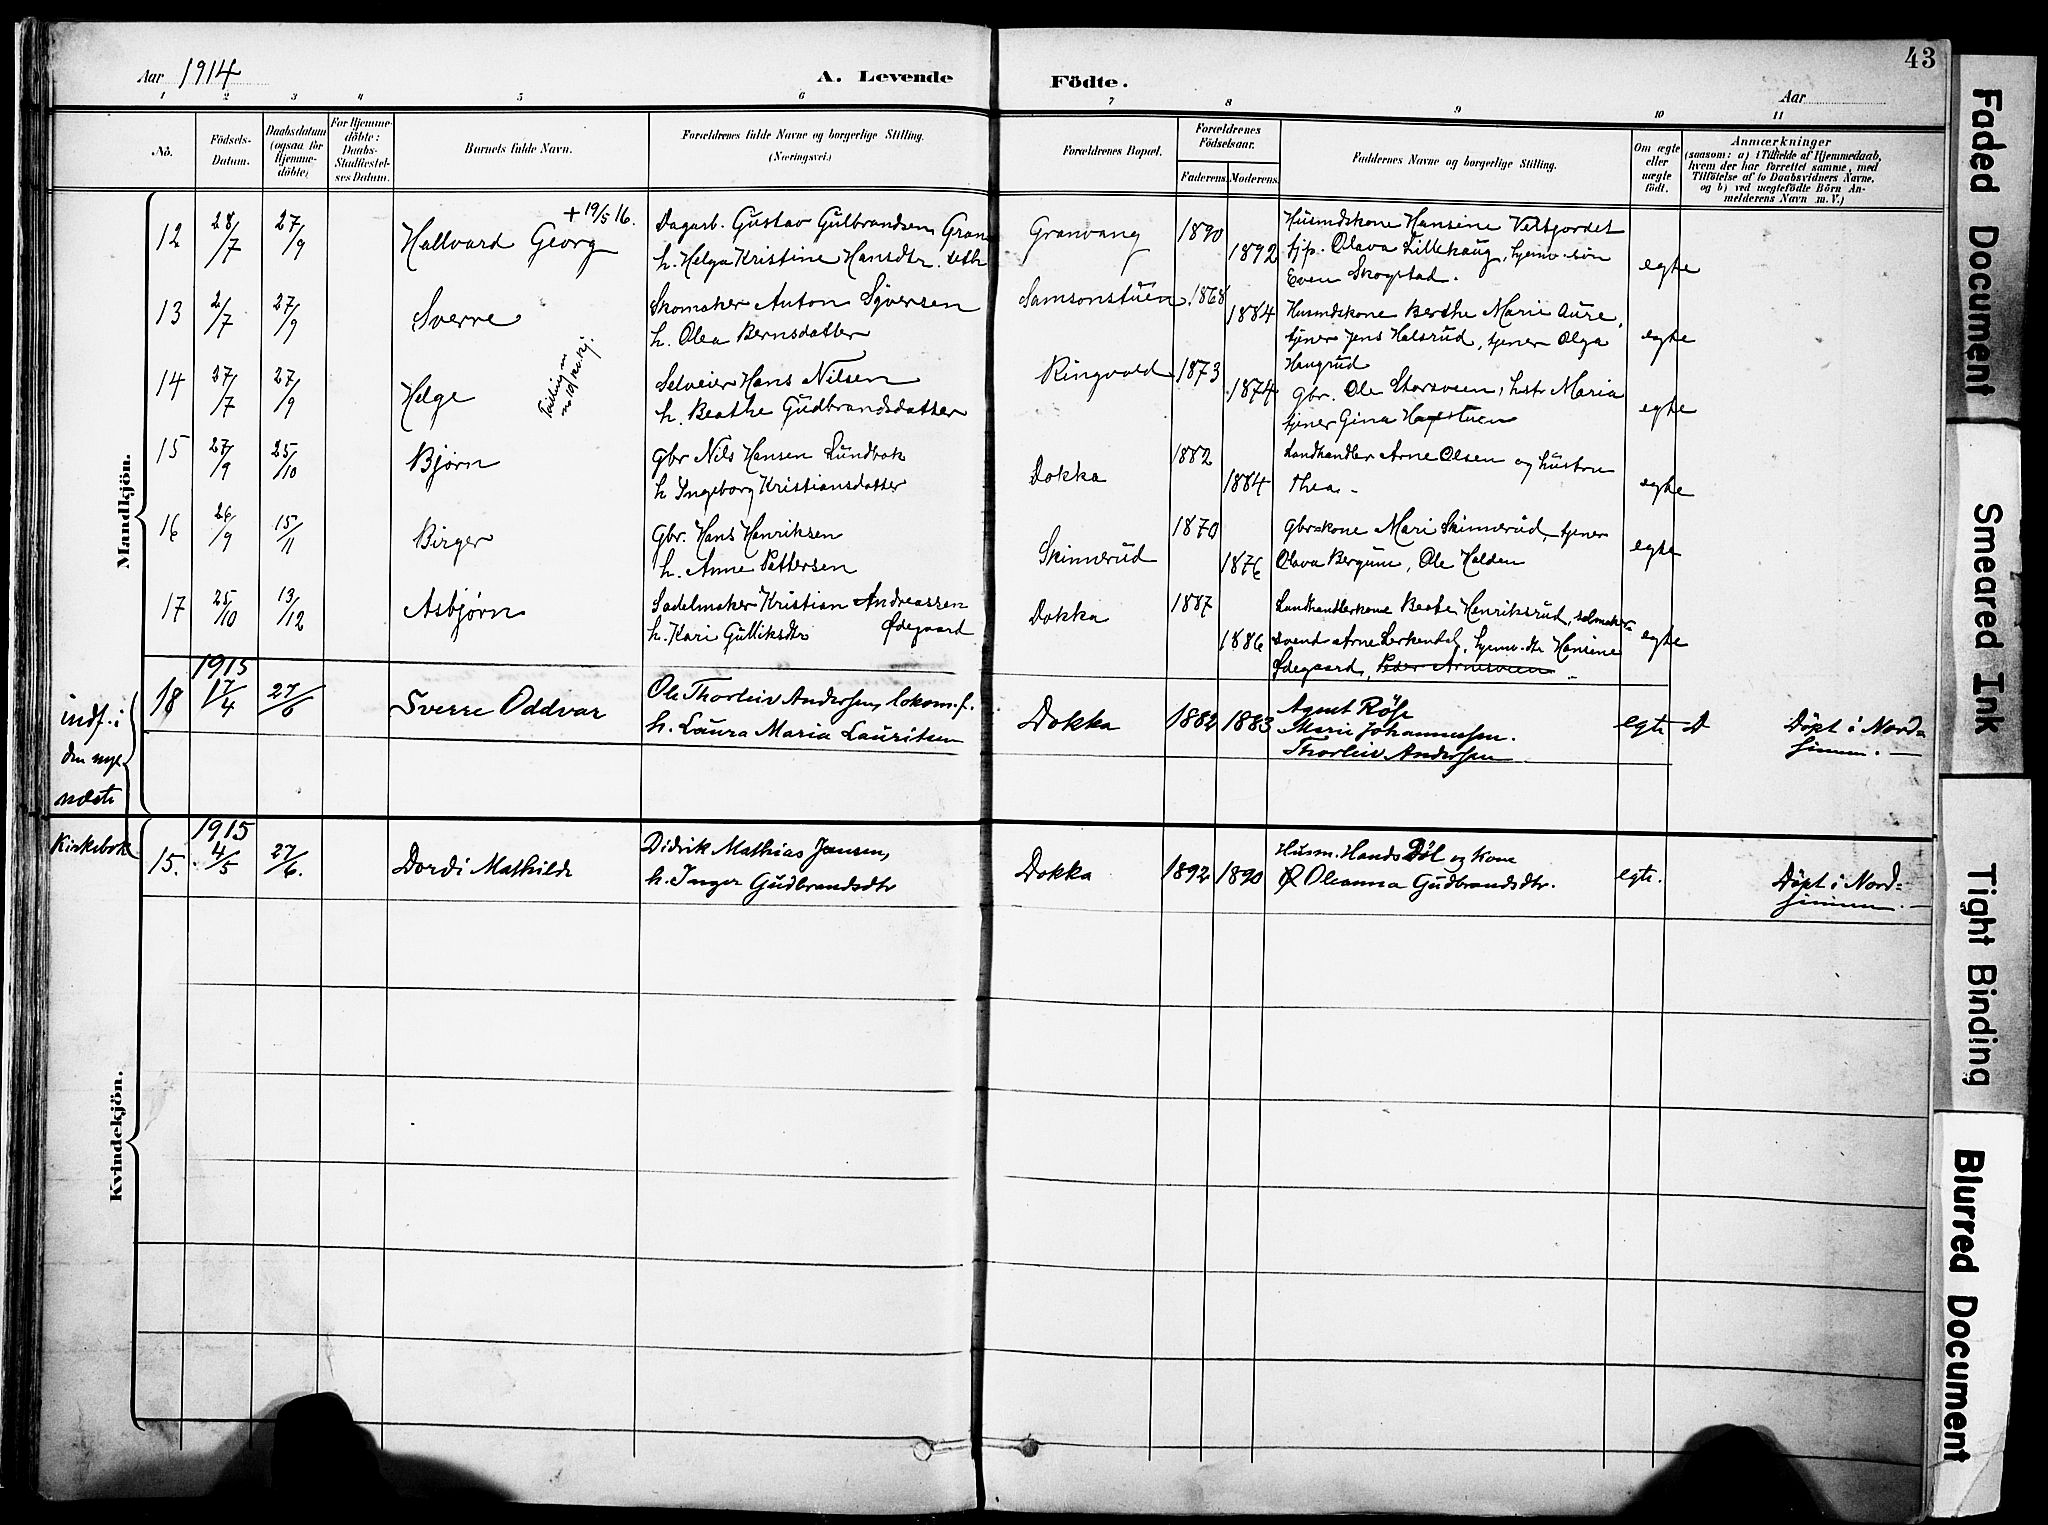 43
Aar 1914
A. Levende Födte.
Aar
1 2 3 4 5 6 7 8 9 10 11
No.
Födsels-
Datum.
Daabsdatum
(ogsaa for
Hjemme-
döbte)
For Hjemme-
döbte:
Daabs-
Stadfæstel-
ses Datum.
Barnets fulde Navn.
Forældrenes fulde Navne og borgerlige Stilling.
(Næringsvei.)
Forældrenes Bopæl.
Forældrenes
Födselsaar.
Faderens. Moderens.
Faddernes Navne og borgerlige Stilling.
Om ægte
eller
uægte
født.
Anmærkninger
(saasom: a) i Tilfælde af Hjemmedaab,
hvem der har forrettet samme, med
Tilföielse af to Daabsvidners Navne,
og b) ved uægtefödte Börn An-
melderens Navn m. V.)
Mandkjön.
12 28/7 27/9 Hallvard Georg + 19/5 16.
Dagarb. Gustav Gulbrandsen Gran
h. Helga Kristine Hansdtr.
Granvang 1890 1892
Husmdskone Hansine Veltjordet
Olava Lillehaug, hjemv. søn
Even Skogstad.
egte
13 2/7 27/9 Sverre
Skomaker Anton Syversen
h. Olea Bernsdatter
Samsonstuen 1868 1884
Husmdskone Berthe Marie Aure,
tjener Jens Halsrud, tjener Olga
Haugrud
egte
14 27/7 27/9 Helge
Tvilling m
Selveier Hans Nilsen
h. Beathe Gudbrandsdatter
Ringvold 1873 1874
Gbr. Ole Storsveen, hstr Maria
tjener Gina
egte
15 27/9 25/10 Bjørn
Gbr Nils Hansen Lundbak
h Ingeborg Kristiansdatter
Dokka 1882 1884
Landhandler Arne Olsen og hustru
Thea.
egte
16 26/9 15/11 Birger
Gbr. Hans Henriksen
h. Anne Pettersen
Skinnerud 1870 1876
Gbrskone Mari Skinnerud, tjener
Olava Bergum, Ole Halden
egte
17 25/10 13/12 Asbjørn
Sadelmaker Kristian Andreassen
h. Kari Gulliksdtr Ødegaard
Dokka 1887 1886
Landhandlerkone Beate Henriksrud, salmaker-
svend Arne Lerkendal, hjemv. dtr Hansine
Ødegaard, Peder Arnesveen.
egte
indf. i
den nye
næste
Kirkebok
1915
18 17/4 27/6 Sverre Oddvar
Ole Thorleiv Andersen, lokom.f.
h. Laura Maria Lauritsen
Dokka 1882 1883
Agnet
Marie Johannessen.
Thorleiv Andersen
egte D Döpt i Nord-
sinnen.
Kvindekjön.
1915
15. 4/5 27/6. Dordi Mathilde
Didrik Mathias Jansen,
h. Inger Gudbrandsdtr
Dokka 1892 1890
Husm. Hans Döl og Kone
Oleanna Gudbrandsdtr.
egte.
Döpt i Nord-
sinnen.
Faded Document
Smeared Ink
Tight Binding
Blurred Document